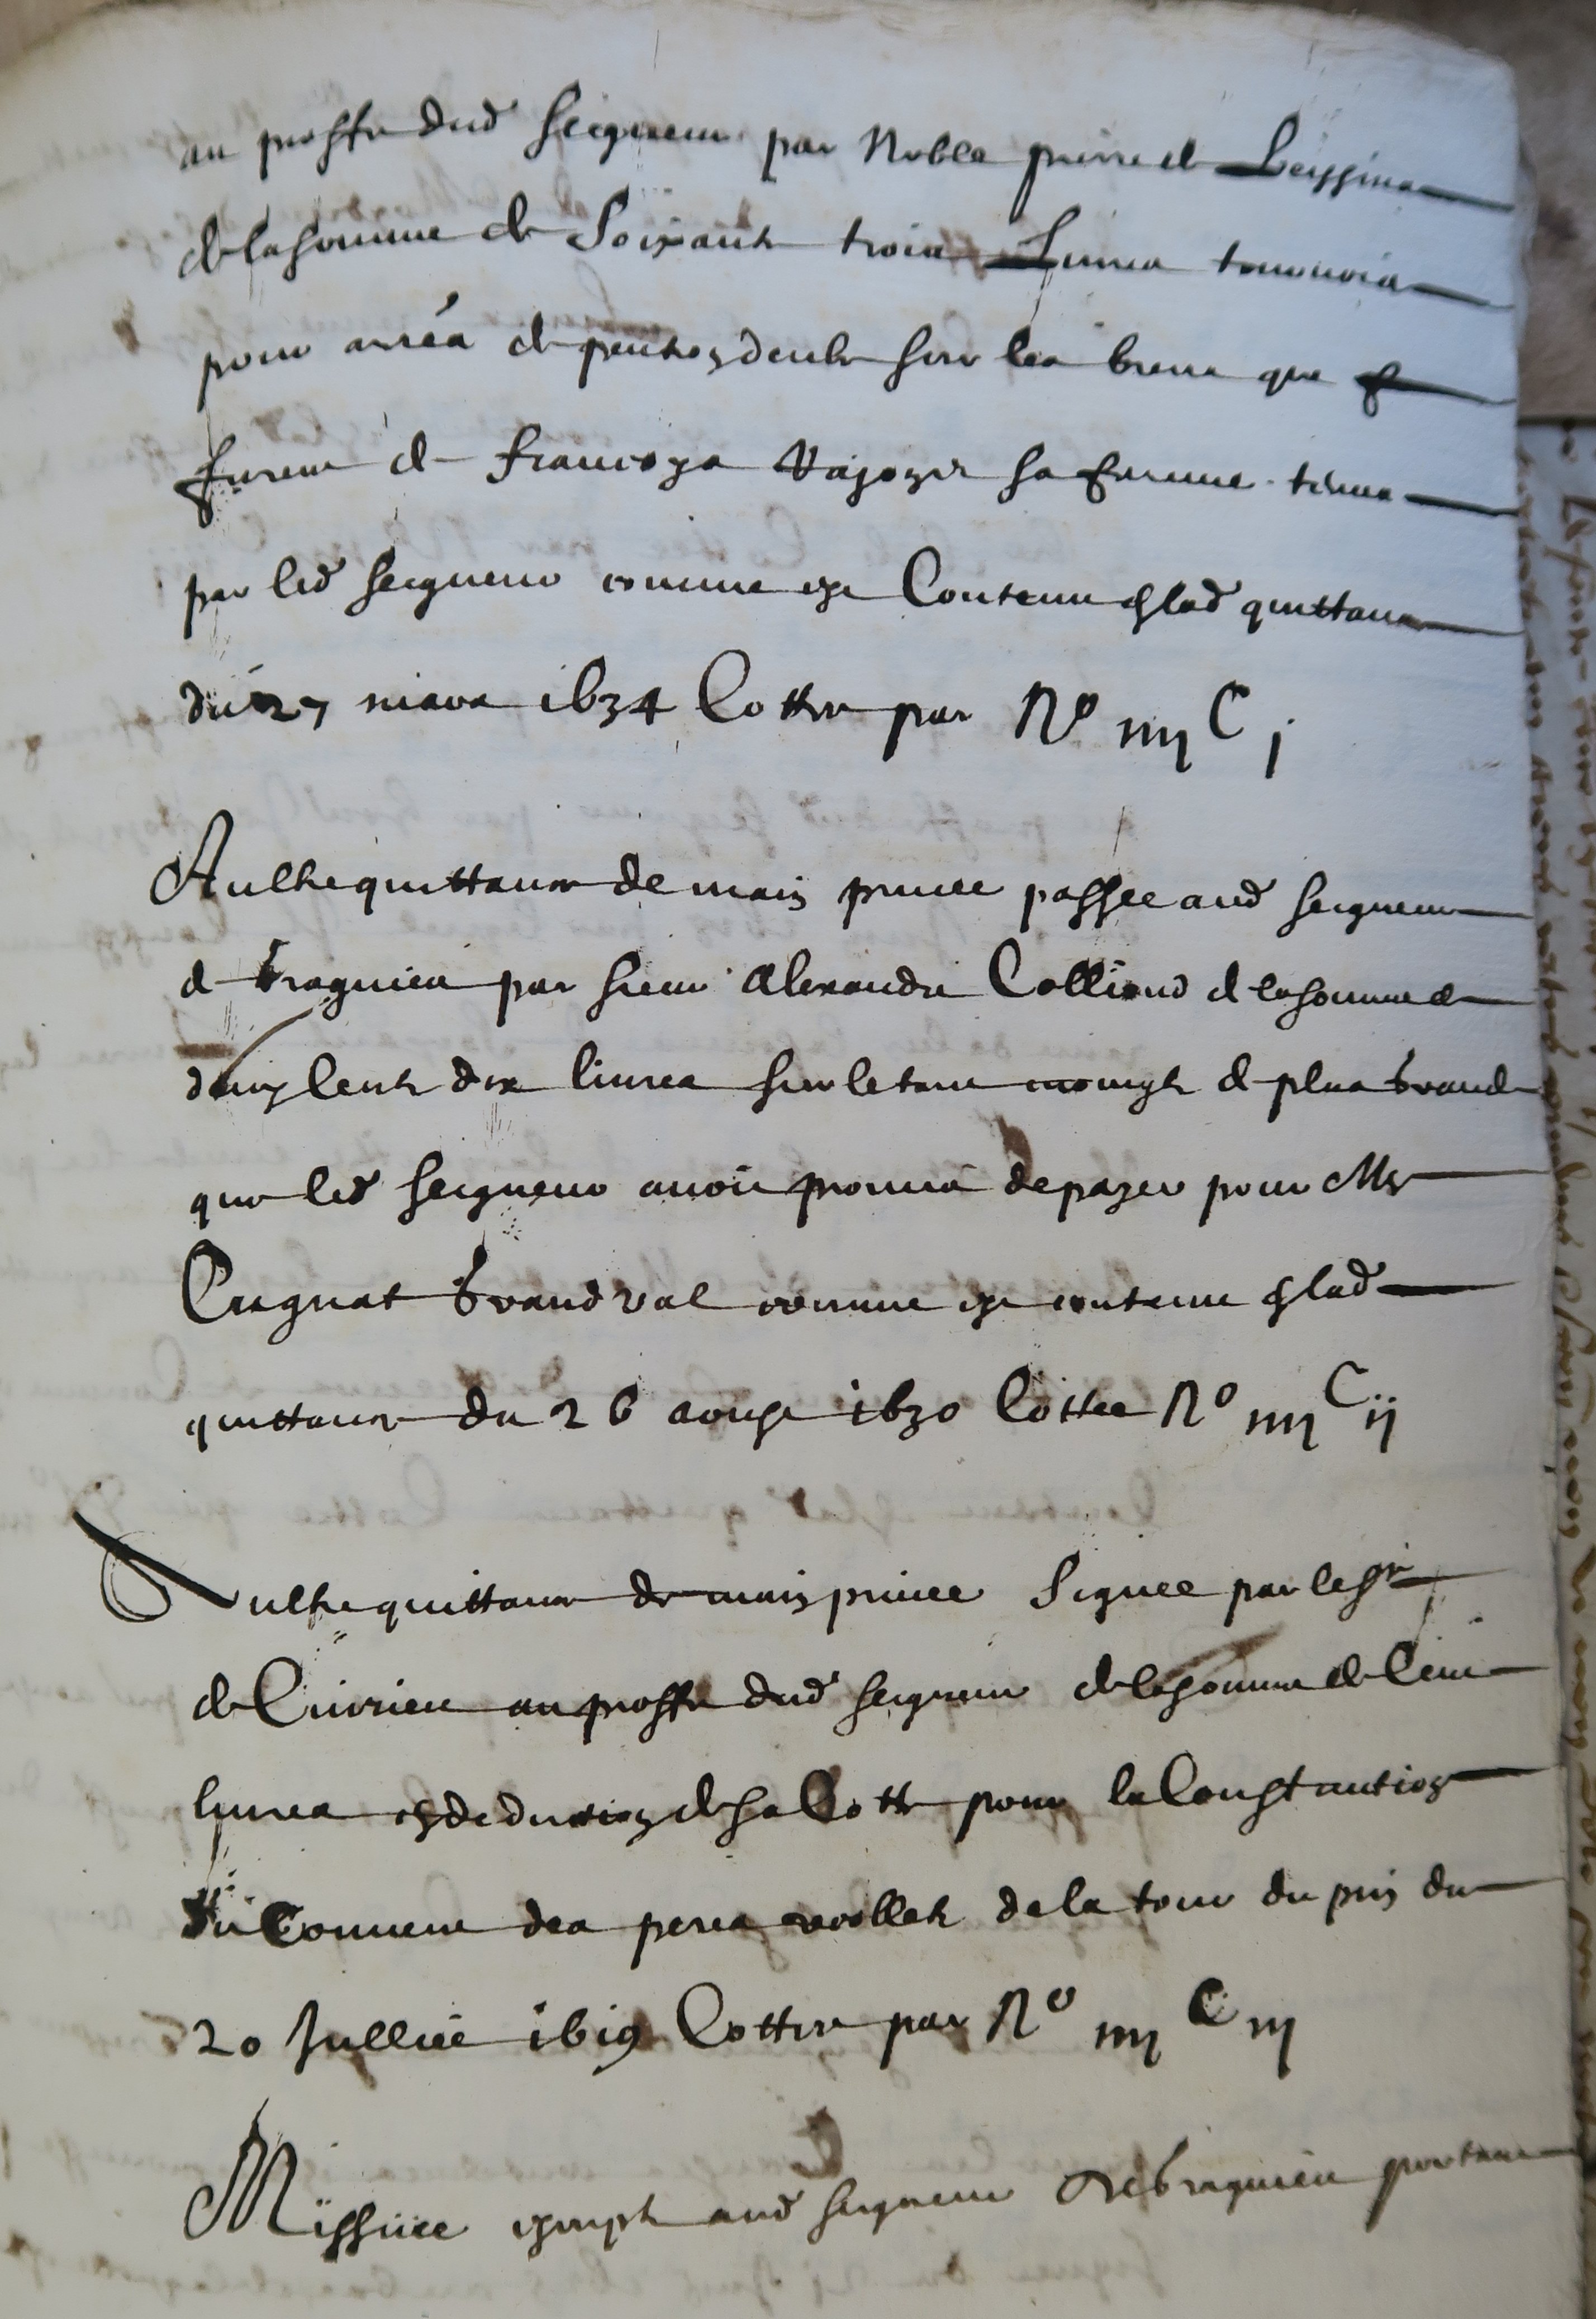 au proffit dud seigneur par Noble pierre de Leyssins
de la somme de Soixante trois Livres tournois
pour arrés de pention deube sur les biens que
furent de françoys Vajozir sa femme tenus
par led seigneur comme est Contenu en lad quittance
du 27 mars 1634 Cottée par No iiij C j
Aultre quittance de main privee passee aud seigneur
de Bragnieu par sieur Alexandre Colliend de la somme de
deux Cents dix livres sur et tant moingts de plus Grande
que led seigneur avoit promis de payer pour Mr
Cuagnat Grand val comme est contenu en lad
quittance du 26 aoust 1630 Cottee No iiij C ij
Aultre quittance de main privee Signee par le sr
de Cuirieu au proffit dud seigneur de la somme de Cent
livres en deduction de sa Cotte pour la Constrution
du Couvent des peres recollets de la tour du pin du
20 Julliet 1619 Cottée par No iiij C iij
Missive escripte aud seigneur de Bragnieu portant